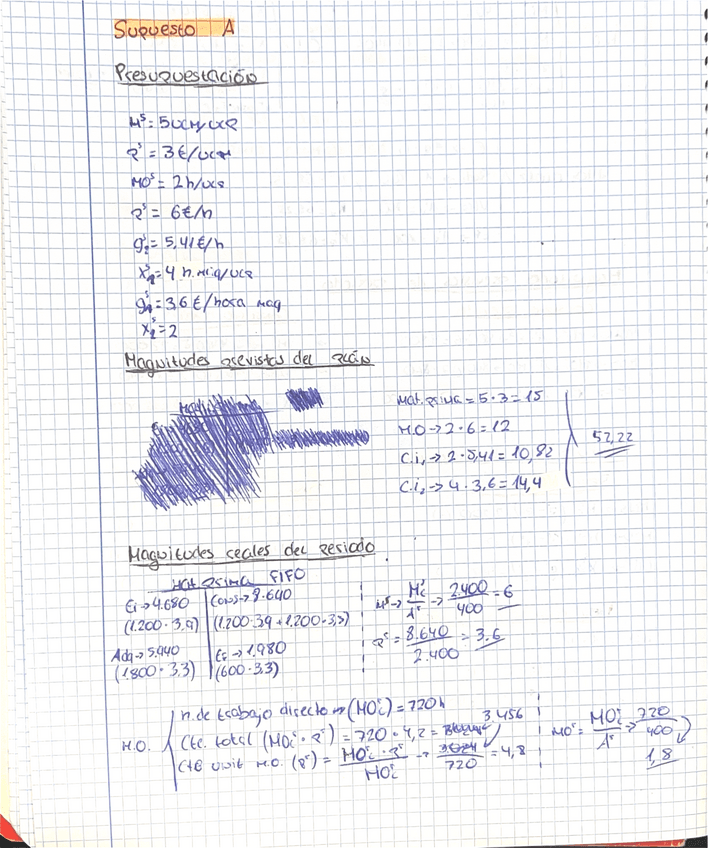 Supuesto A
Presupuestación
Mˢ = 5 UCM/UCP
pˢ = 3 €/UCM
MOˢ = 2h/UCP
pˢ = 6€/h
g₂ˢ = 5,41 €/h
X₁ˢ = 4 h. máq/UCP
g₁ˢ = 3,6 €/hora maq
X₂ˢ = 2
Magnitudes previstas del plan
Mat. prima = 5 · 3 = 15
M.O → 2 · 6 = 12
C.i₁ → 2 · 5,41 = 10,82
C.i₂ → 4 · 3,6 = 14,4
52,22
Magnitudes reales del periodo
Mat prima FIFO
Ei → 4.680 Cons → 8.640
(1.200 · 3,9) (1.200 · 3,9 + 1.200 · 3,3)
Adq → 5.940 Ef → 1.980
(1.800 · 3,3) (600 · 3,3)
→ 2.400 / 400 = 6
= 8.640 / 2.400 = 3,6
M.O.
h. de trabajo directo → (MO) = 720 h
Cte. total (MO · pʳ) = 720 · 4,2 = 3.456
Cte unit M.O. (pʳ) = MO · pʳ / MO → 3024 / 720 = 4,8
MOʳ = MO / Aʳ → 720 / 400
1,8